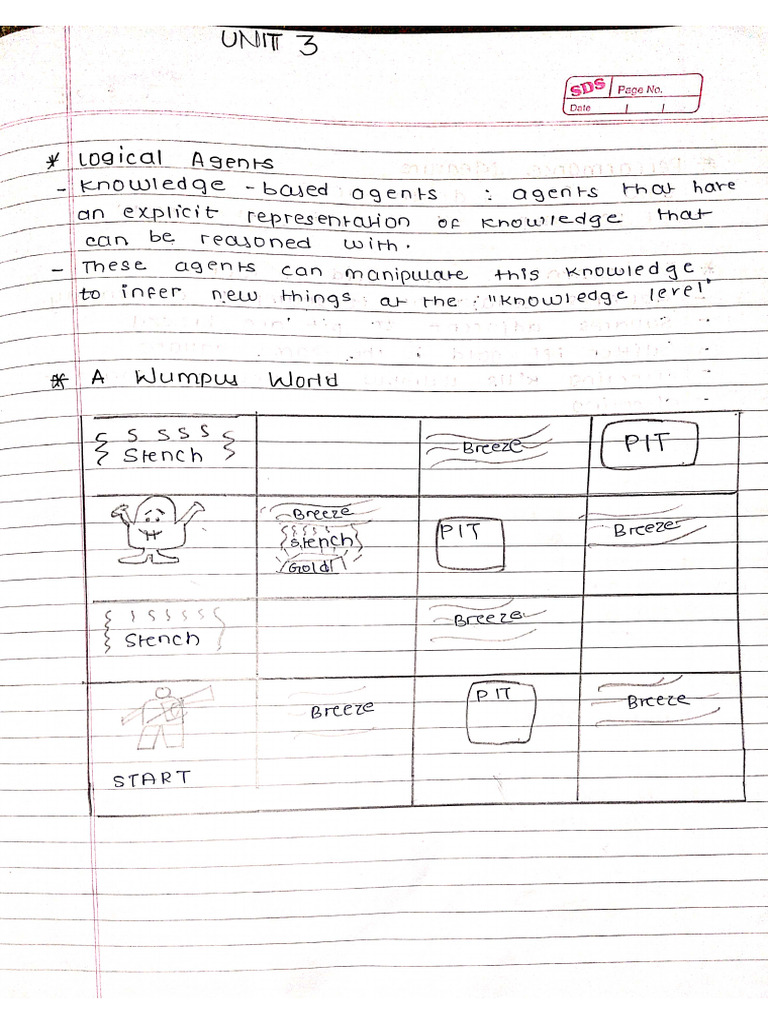 UNIT 3
SDS Page No.
Date
* Logical Agents
- Knowledge - based agents : agents that have
an explicit representation of knowledge that
can be reasoned with.
- These agents can manipulate this knowledge
to infer new things at the "knowledge level"
* A Wumpus World
S SSSS
Stench
Breeze
PIT
Breeze
Stench
Gold
PIT
Breeze
SSSSSS
Stench
Breeze
START
Breeze
PIT
Breeze